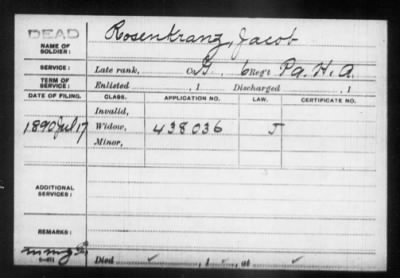 DEAD
NAME OF SOLDIER: Rosenkranz, Jacob
SERVICE: Late rank, Co. G, 6 Reg't Pa. H. A.
TERM OF SERVICE: Enlisted , 1 Discharged , 1
DATE OF FILING. CLASS. APPLICATION NO. LAW. CERTIFICATE NO.
Invalid,
1890 Jul 17 Widow, 438036 J
Minor,
ADDITIONAL SERVICES:
REMARKS:
Died ✓ , 1 ✓ , at ✓